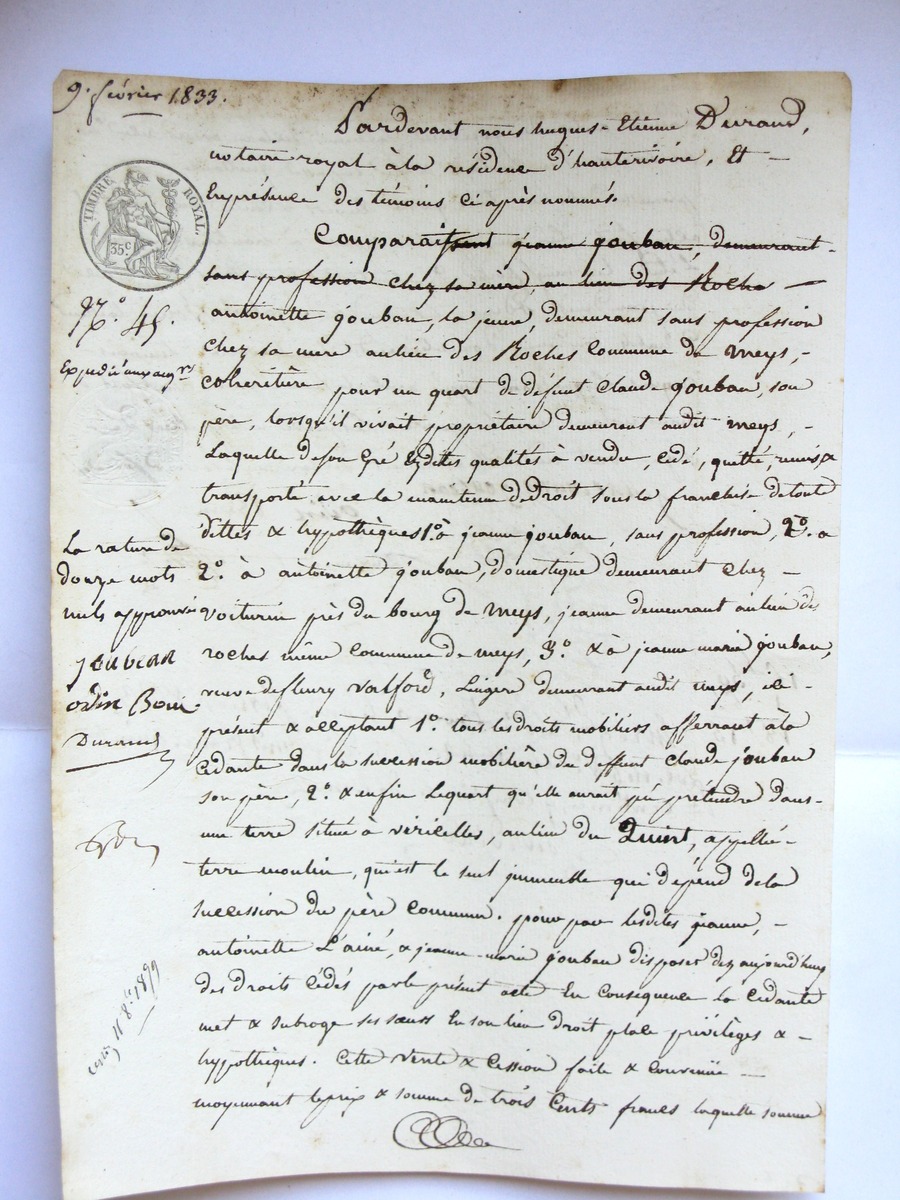 9. février 1833.
TIMBRE ROYAL.
35c
Pardevant nous hugues-Etienne Durand,
notaire royal à la résidence d'hauterivoire, Et
En présence des témoins ci après nommés.
Comparaissent jeanne jouban, demeurant
sans profession chez sa mère, au lieu des Roche
antoinette jouban, la jeune, demeurant sans profession
chez sa mere au lieu des Roches commune de meys,
cohéritière pour un quart de défunt Claude jouban, son
père, lorsqu'il vivait propriétaire demeurant audit meys,
Laquelle de son gré Esdites qualités à vendu, cédé, quitté, remis &
transporté avec la maintenue de droit sous la franchise de toute
dettes & hypothèques 1º. à jeanne jouban, sans profession, 2º. a
2º. à antoinette jouban, domestique demeurant chez
voiturin près du bourg de meys, jeanne demeurant au lieu des
roches même commune de meys, 3º. & à jeanne marie jouban,
veuve de fleury valford, Lingère demeurant audit meys, ici
présent & acceptant 1º. tous les droits mobiliers afferant à la
cédante dans la succession mobilière du deffunt Claude jouban
son père, 2º. & enfin Lequart qu'elle aurait pu prétendre dans
une terre située à viricelles, au lieu du Quint, appellée
terre moulin, qui est le seul immeuble qui dépend de la
succession du père commun. pour par lesdites jeanne,
antoinette L'ainé, & jeanne-marie jouban disposer dez aujourd'huy
des droits cédés par le présent acte En conséquence la cédante
met & subroge ses sœurs En son lieu droit place privilèges &
hypothèques. Cette vente & cession faite & convenüe
moyennant le prix & somme de trois cents francs laquelle somme
Nº. 45.
Expédié aux acqrs
La rature de
douze mots
nuls approuvé
Joubean
odin Boin
Durand
11 8e. 1899